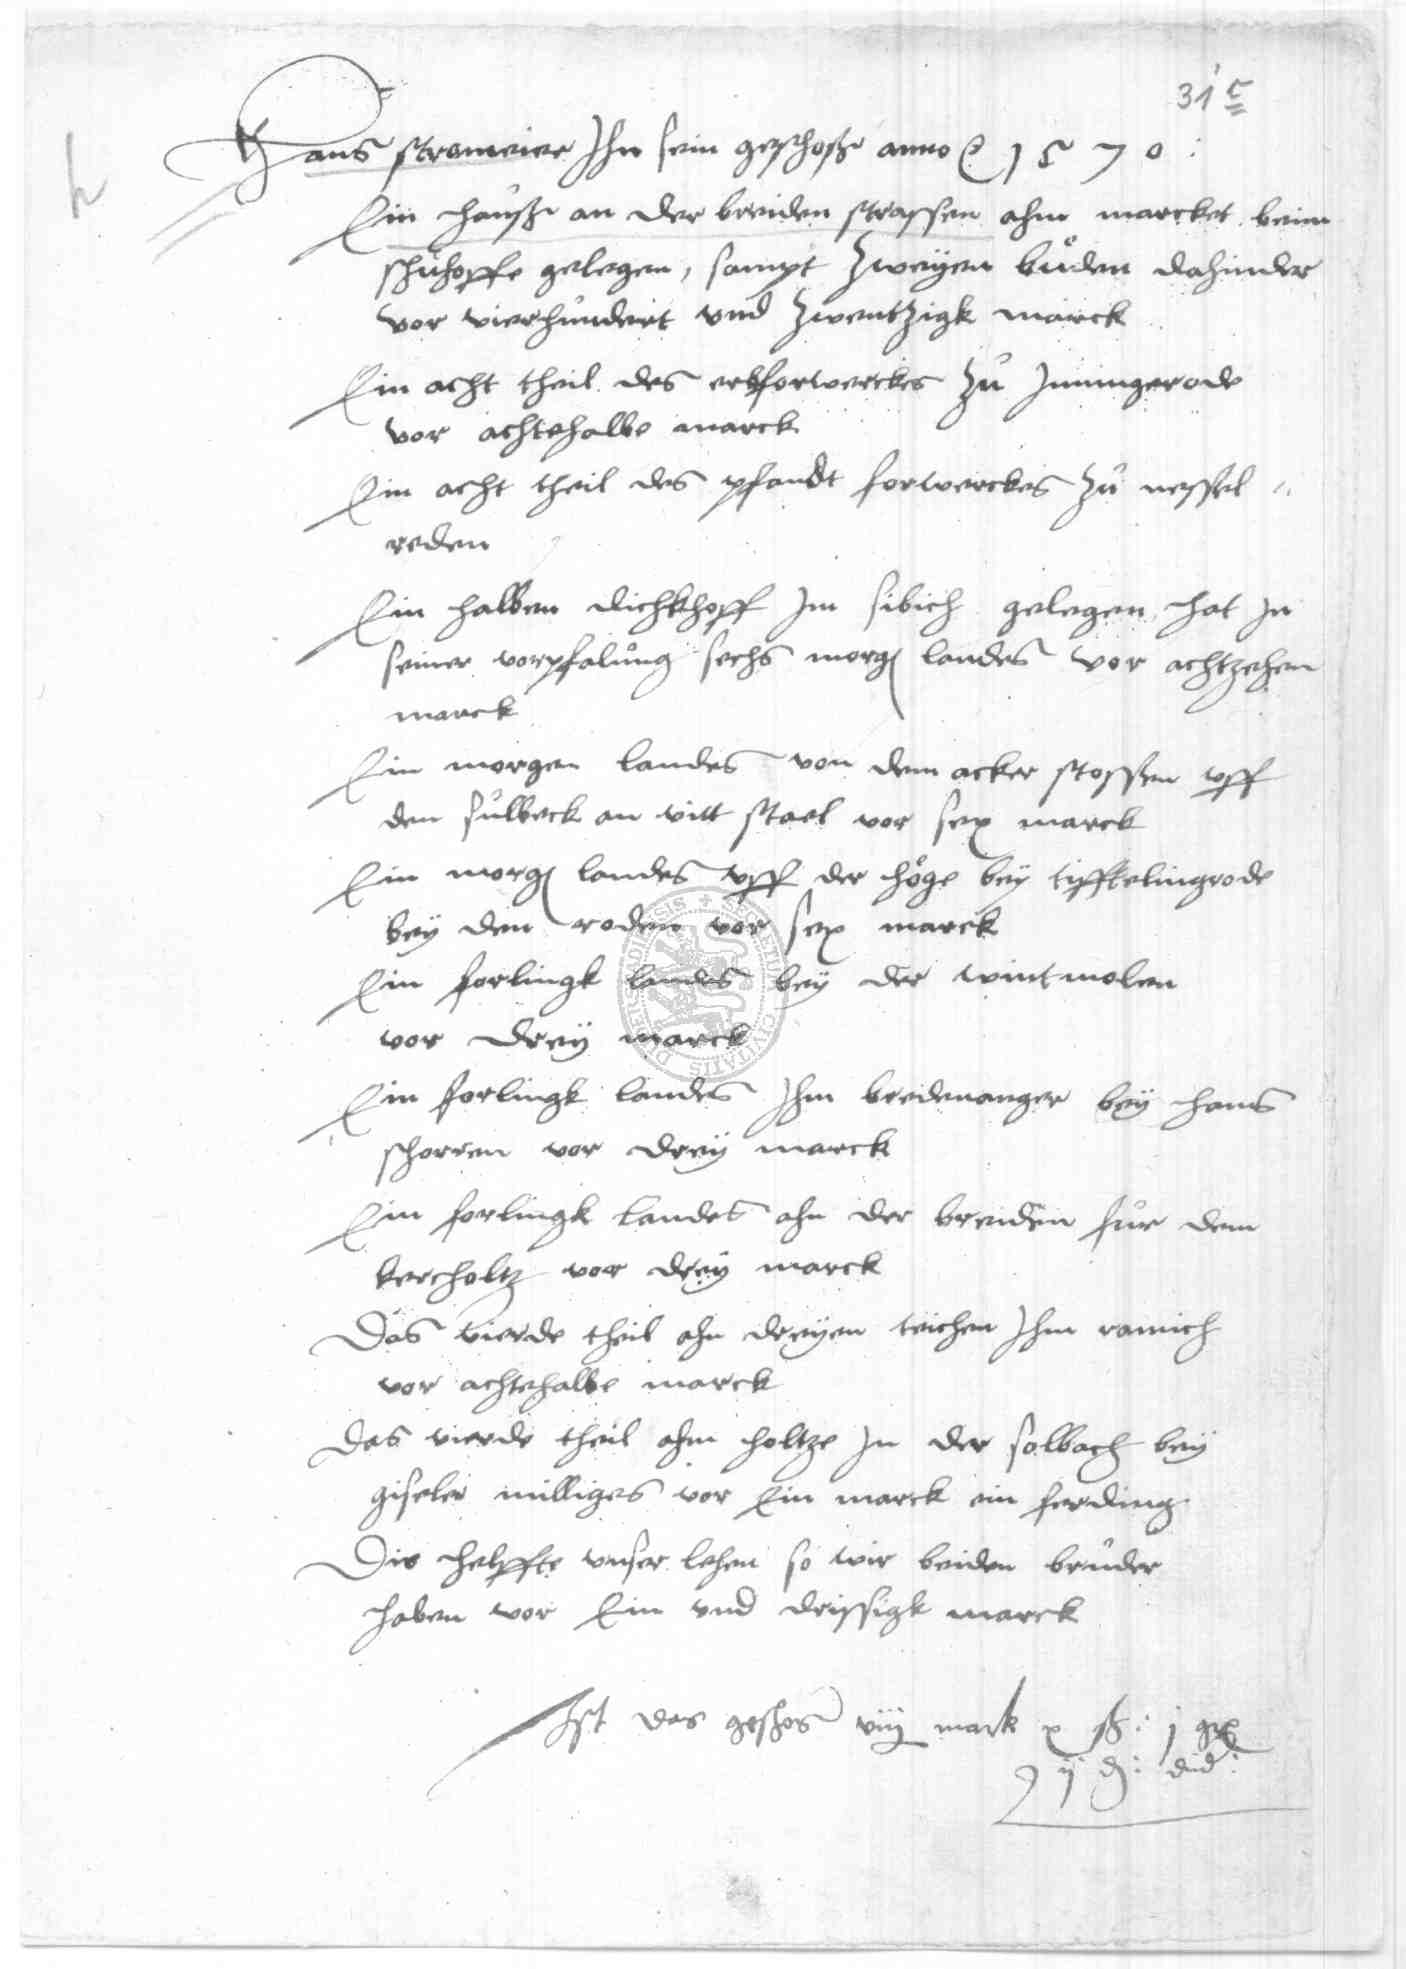 31 5
h
Hans stromeier Ihn sein geschosse anno 1570 :
Ein hauße an der breiden strassen ahm marcket beim
schuhoffe gelegen, sampt zweyen buden dahinder
vor vierhundert und zwentzigk marck
Ein acht theil des erbforwerckes zu Immingerode
vor achtehalbe marck
Ein acht theil des pfandt forwerckes zu nessel
reden
Ein halben dichkhoff Im sibich gelegen hat In
seiner vorpfalung sechs morg landes vor achtzehen
marck
Ein morgen landes von dem acker stossen uff
den sulbeck an vitt stael vor sex marck
Ein morg landes uff der höge bey tifftelingrode
bey den roden vor sex marck
Ein forlingk landes bey der wintmolen
vor drey marck
Ein forlingk landes Ihm bredenanger bey hans
schorren vor drey marck
Ein forlingk landes ahn der breiden fur dem
kercholtz vor drey marck
Das vierde theil ahn dreyen teichen Ihm ramich
vor achtehalbe marck
Das vierde theil ahm holtze In der solbach bey
giseler milliges vor Ein marck ein ferding
Die helffte unser lehen so wir beiden bruder
haben vor Ein und drissigk marck
Ist das geschos viij mark x ß : j gr
ij d : dedit
SECRETUM CIVITATIS DUDERSTADIENSIS